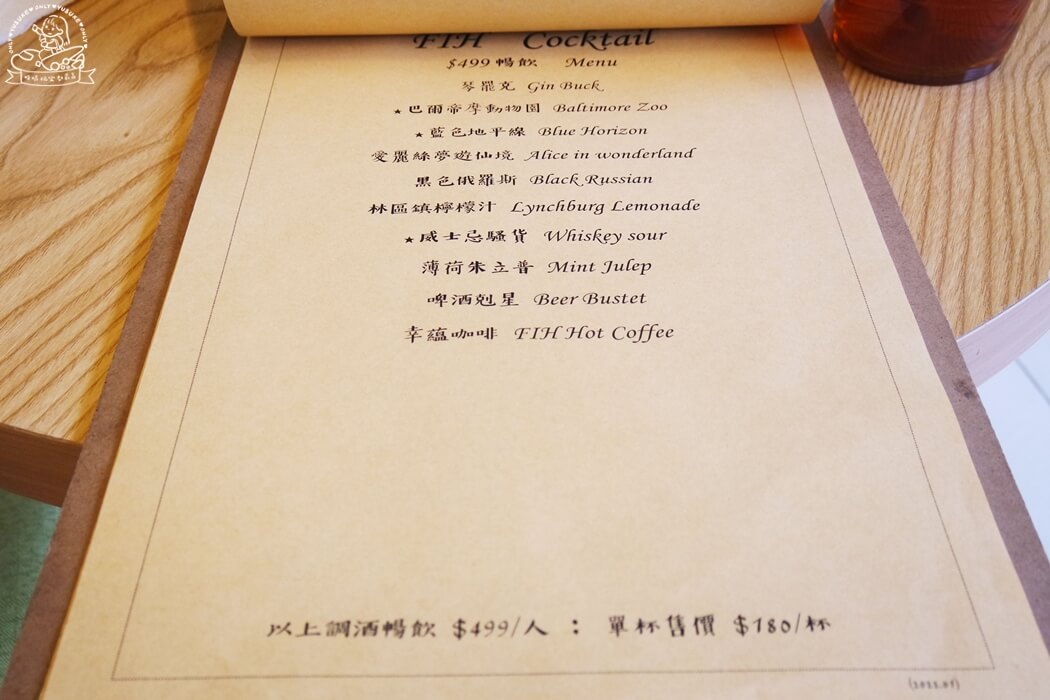 FIH Cocktail
$499 暢飲 Menu
琴罷克 Gin Buck
★巴爾帝摩動物園 Baltimore Zoo
★藍色地平線 Blue Horizon
愛麗絲夢遊仙境 Alice in wonderland
黑色俄羅斯 Black Russian
林區鎮檸檬汁 Lynchburg Lemonade
★威士忌騷貨 Whiskey sour
薄荷朱立普 Mint Julep
啤酒剋星 Beer Bustet
幸蘊咖啡 FIH Hot Coffee
以上調酒暢飲 $499/人 : 單杯售價 $180/杯